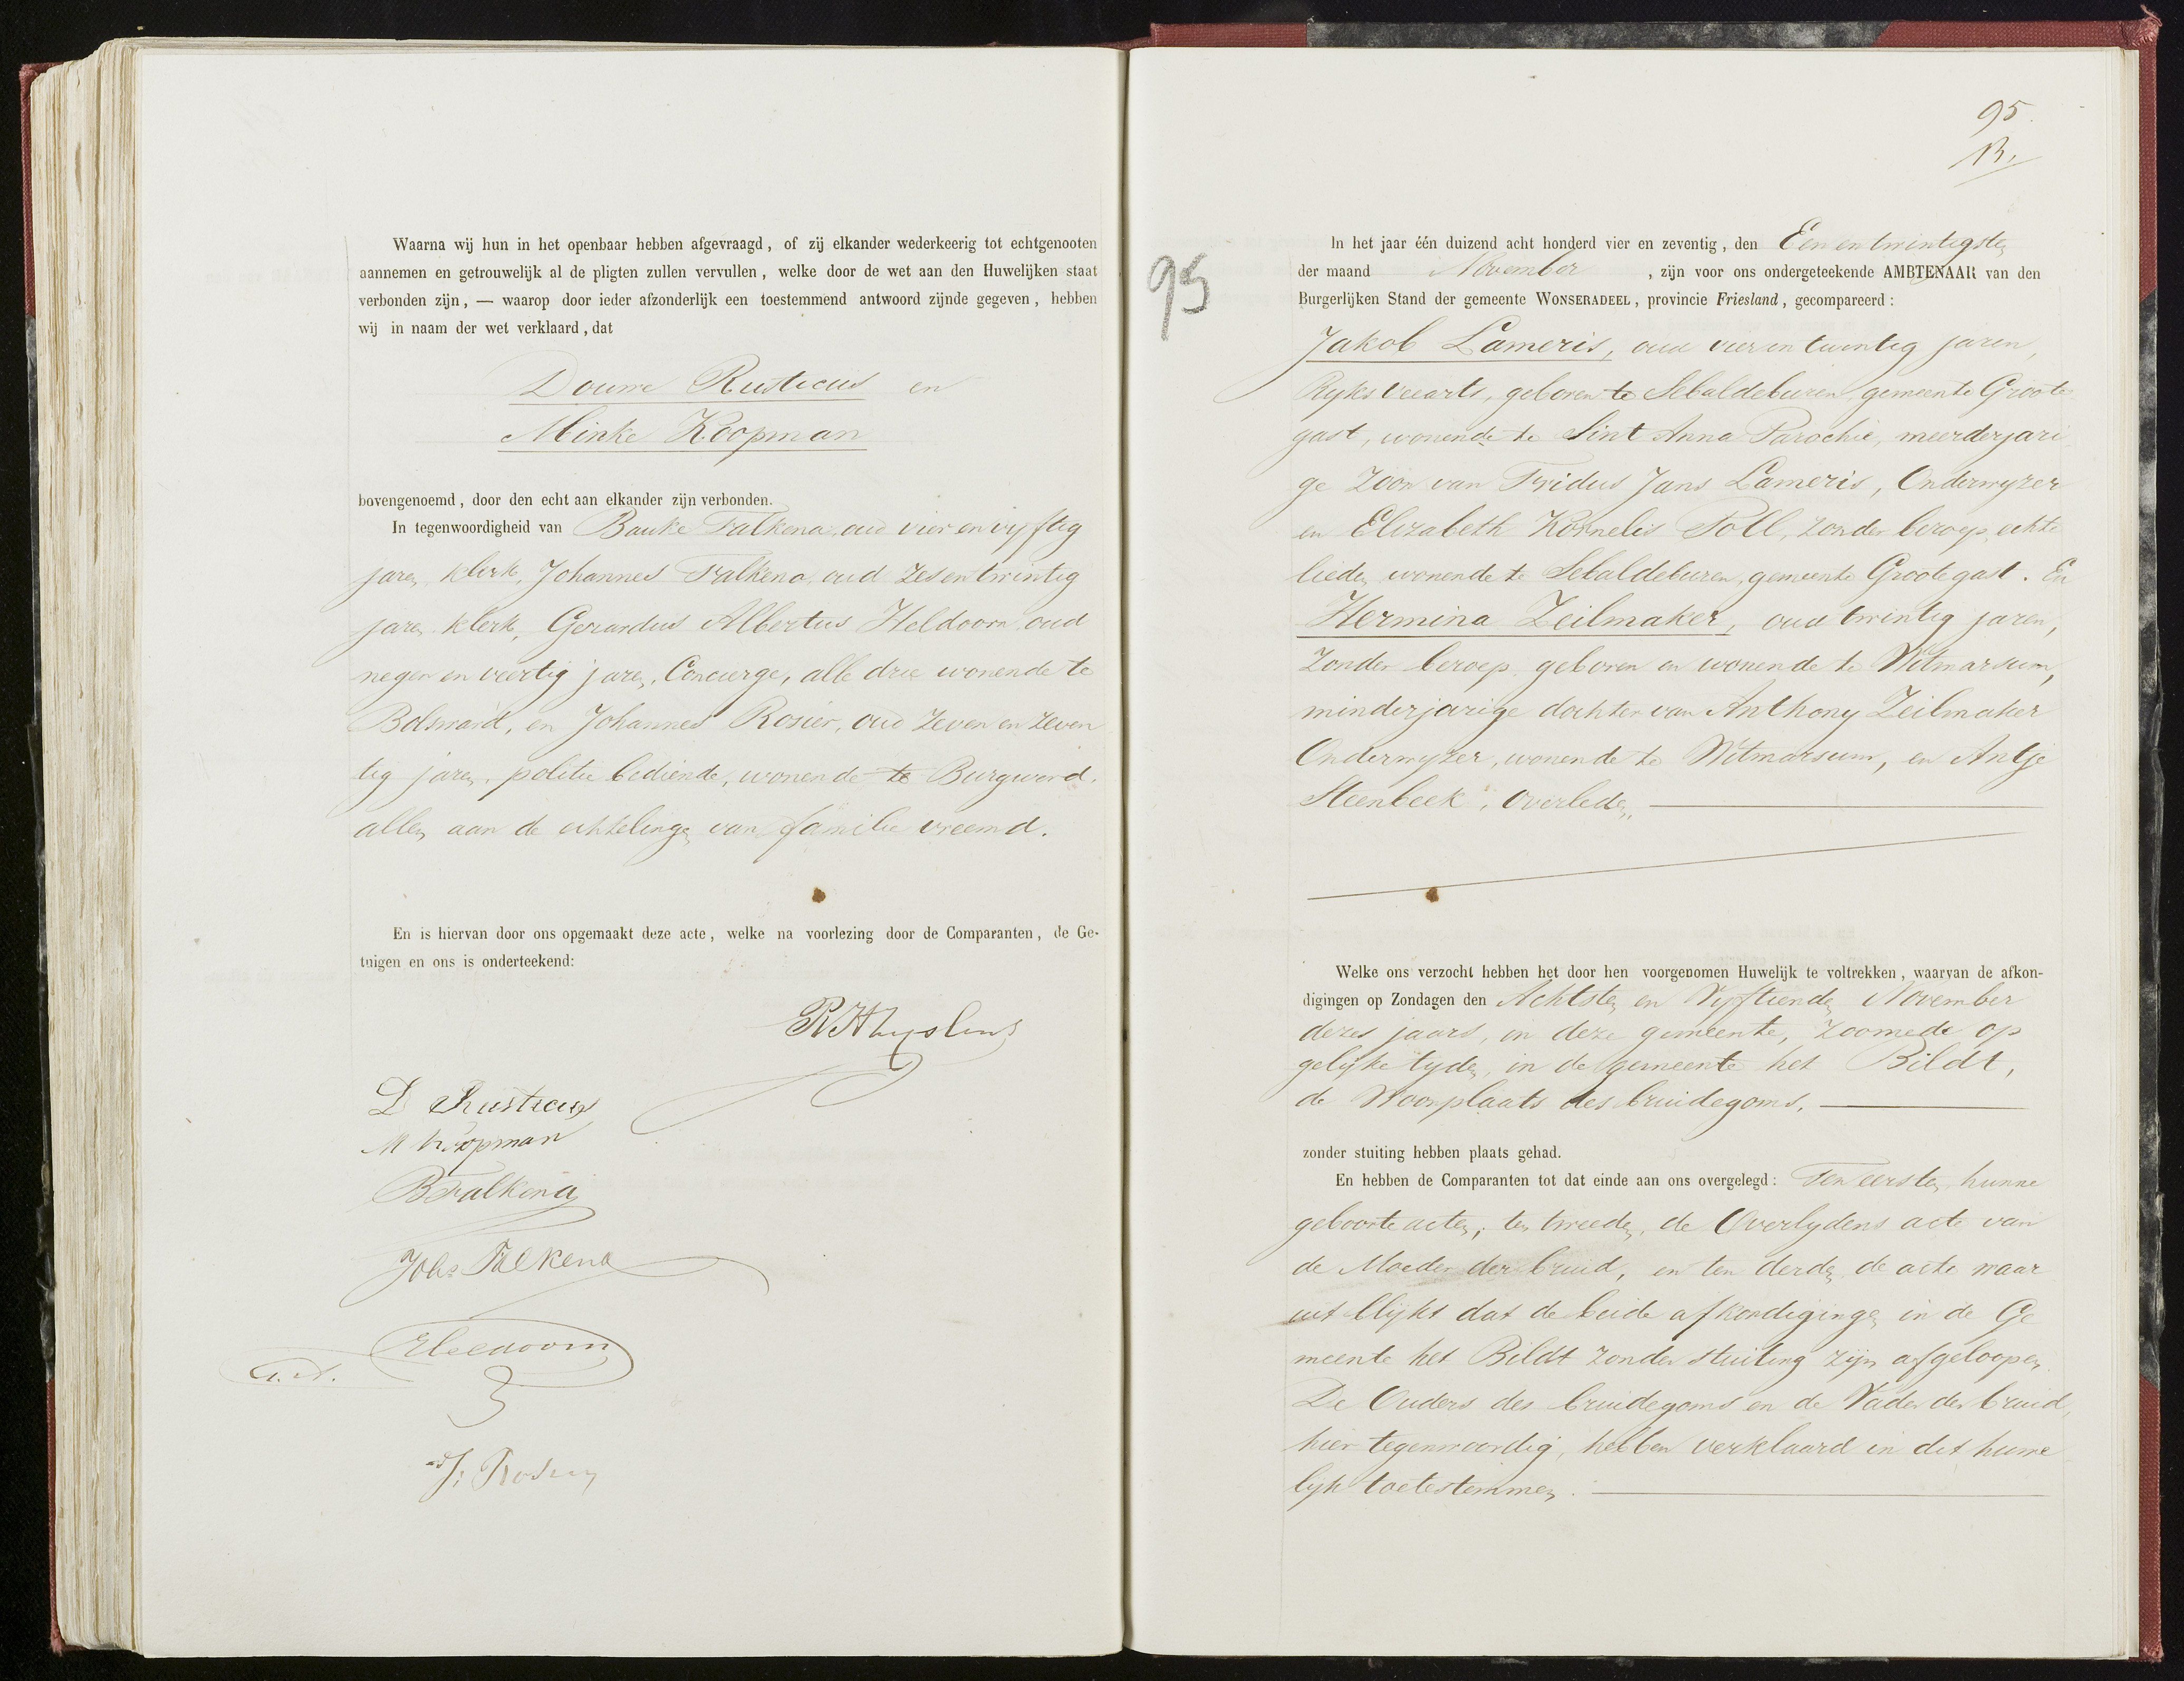 Waarna wij hun in het openbaar hebben afgevraagd, of zij elkander wederkeerig tot echtgenooten
aannemen en getrouwelijk al de pligten zullen vervullen, welke door de wet aan den Huwelijken staat
verbonden zijn, — waarop door ieder afzonderlijk een toestemmend antwoord zijnde gegeven, hebben
wij in naam der wet verklaard, dat
Douwe Rusticus en
Minke Koopman
bovengenoemd, door den echt aan elkander zijn verbonden.
In tegenwoordigheid van Bauke Falkena, oud vier en vyftig
jaren, klerk, Johannes Falkena, oud zes en twintig
jaren, klerk, Gerardus Albertus Heldoorn oud
negen en veertig jaren, Concierge, alle drie wonende te
Bolsward, en Johannes Rosier, oud zeven en zeven
tig jaren, politie bediende, wonende te Burgwerd,
allen aan de echtelingen van familie vreemd.
En is hiervan door ons opgemaakt deze acte, welke na voorlezing door de Comparanten, de Ge-
tuigen en ons is onderteekend:
D Rusticus
M Koopman
B Falkena
Johs Falkena
Heldoorn
J: Rosier
95.
B.
95
In het jaar één duizend acht honderd vier en zeventig, den Een en twintigsten
der maand November, zijn voor ons ondergeteekende AMBTENAAR van den
Burgerlijken Stand der gemeente WONSERADEEL, provincie Friesland, gecompareerd:
Jakob Lameris, oud vier en twintig jaren,
Ryks veearts, geboren te Sebaldeburen, gemeente Groote
gast, wonende te Sint Anna Parochie, meerderjari
ge Zoon van Fridus Jans Lameris, Onderwyzer
en Elizabeth Kornelis Poll, zonder beroep, echte
lieden wonende te Sebaldeburen, gemeente Grootegast. En
Hermina Zeilmaker, oud twintig jaren,
zonder beroep geboren en wonende te Witmarsum,
minderjarige dochter van Anthony Zeilmaker
Onderwyzer, wonende te Witmarsum, en Antje
Steenbeek, overleden,
Welke ons verzocht hebben het door hen voorgenomen Huwelijk te voltrekken, waarvan de afkon-
digingen op Zondagen den Achtsten en Vyftienden November
dezes jaars, in deze gemeente, zoomede op
gelyke tyden, in de gemeente het Bildt,
de Woonplaats des bruidegoms.
zonder stuiting hebben plaats gehad.
En hebben de Comparanten tot dat einde aan ons overgelegd: Ten eersten, hunne
geboorte acten; ten tweeden, de Overlydens acte van
de Moeder der bruid, en ten derden de acte waar
uit blykt dat de beide afkondigingen in de Ge
meente het Bildt zonder stuiting zijn afgeloopen.
De Ouders des bruidegoms en de Vader der bruid,
hier tegenwoordig, hebben verklaard in dit huwe
lyk toetestemmen.